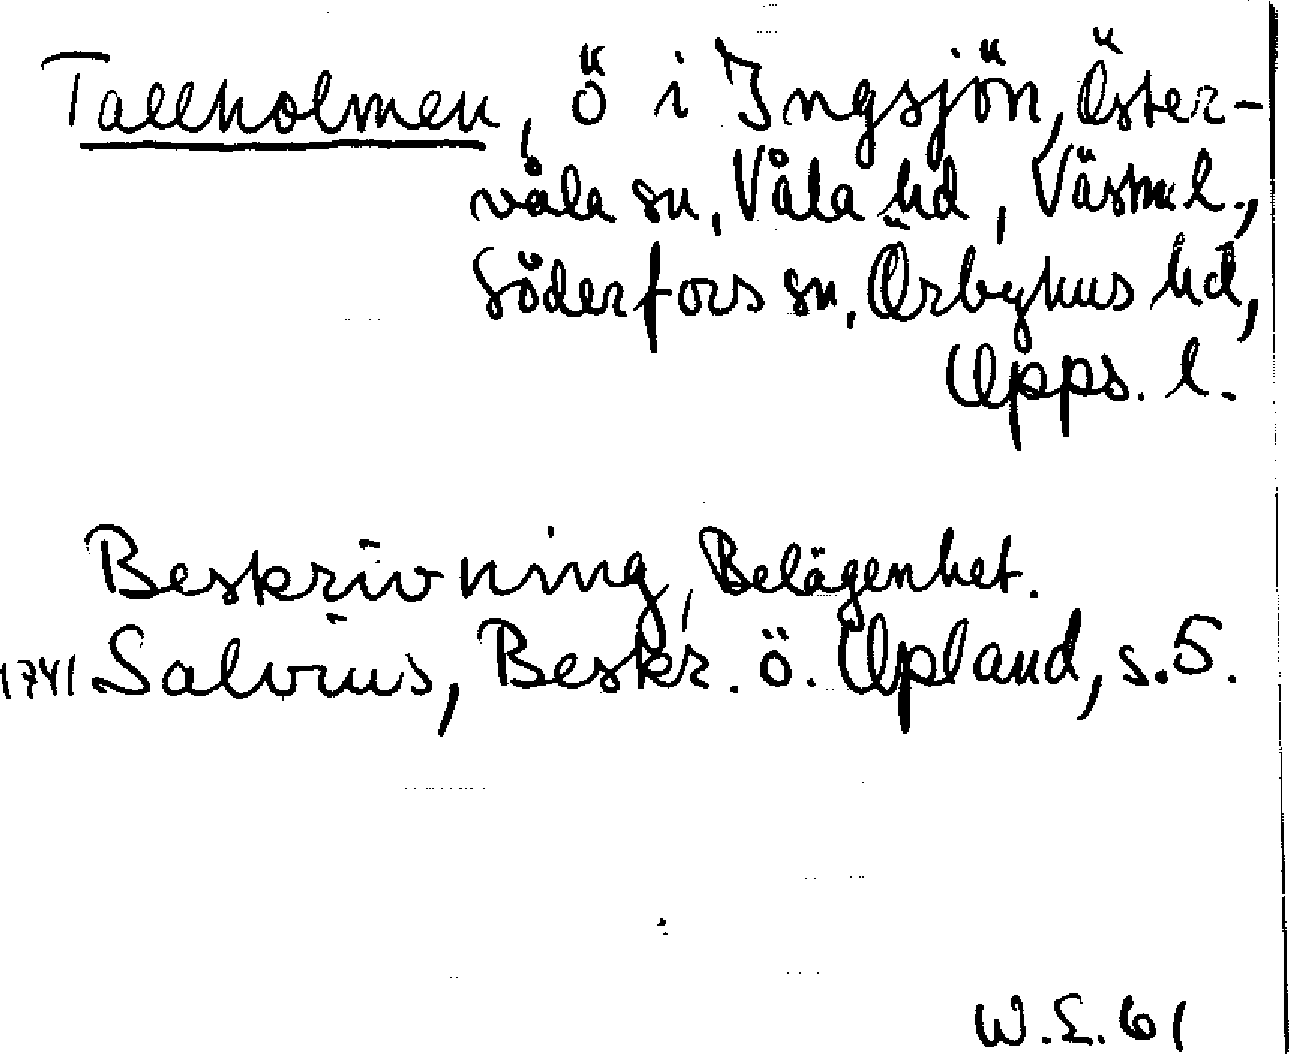 Tallholmen, ö i Ingsjön, Öster-
våla sn, Våla hd, Västm. l.,
Söderfors sn, Örbyhus hd,
Upps. l.
Beskrivning, Belägenhet.
1741 Salvius, Beskr. ö. Upland, s. 5.
W.L. 61